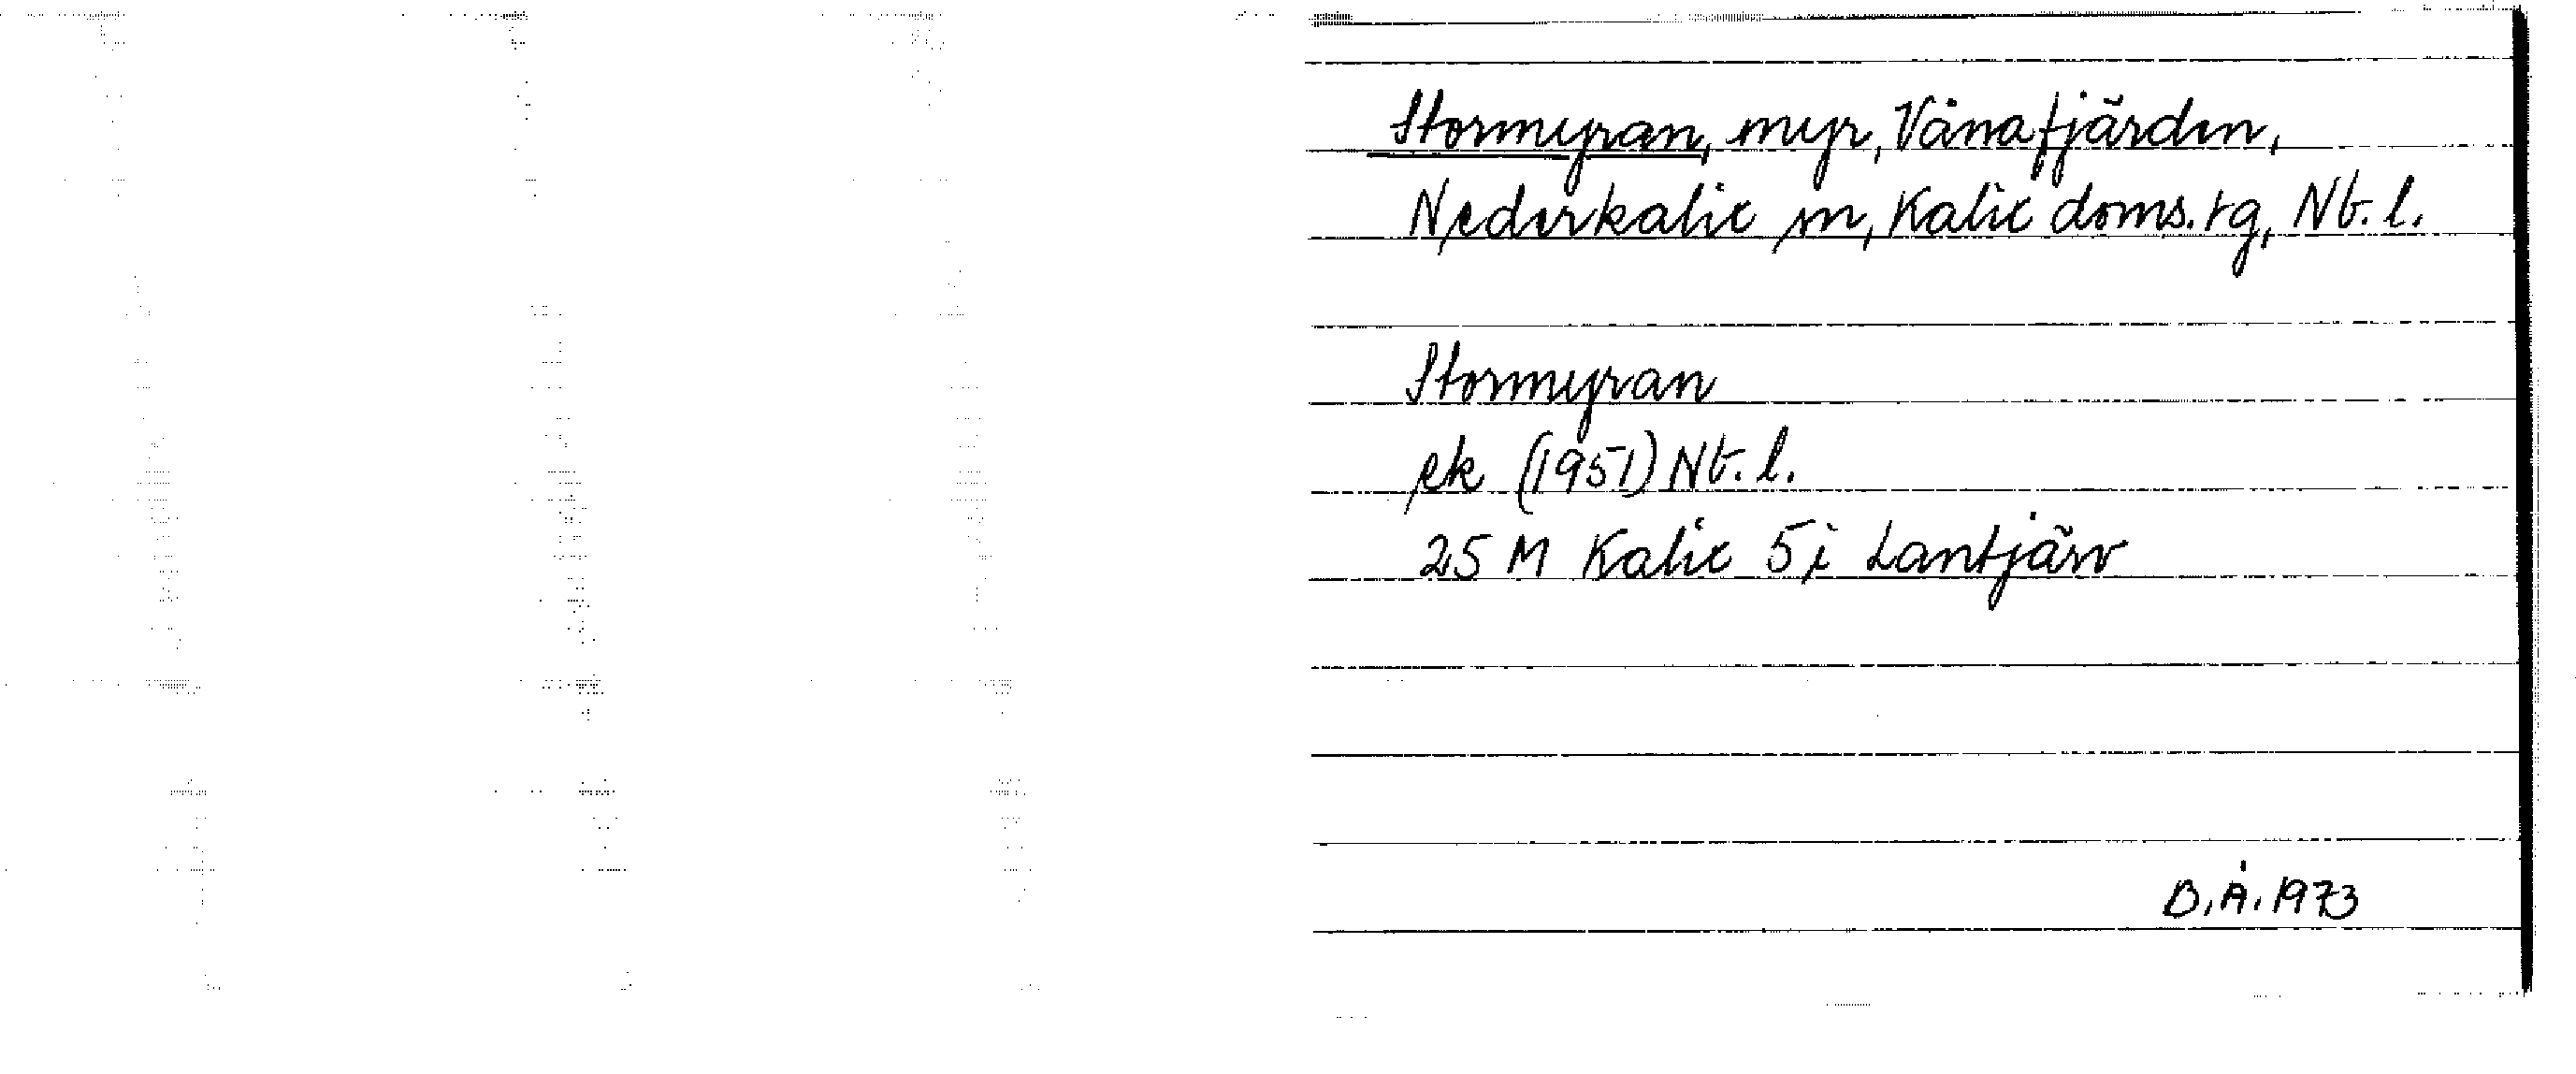 Stormyran, myr, Vånafjärden,
Nederkalix sn, Kalix doms.tg, Nb. l.
Stormyran
ek (1951) Nb. l.
25 M Kalix 5i Lantjärv
B.Å. 1973